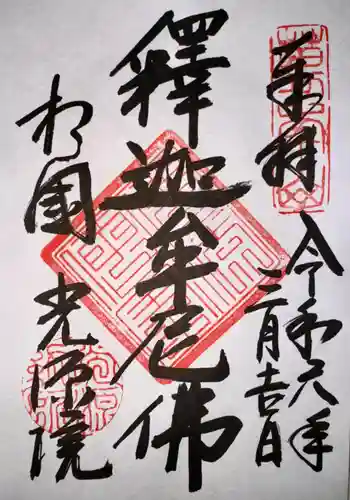 奉拝
令和六年
二月吉日
釋迦牟尼佛
相国
光源院